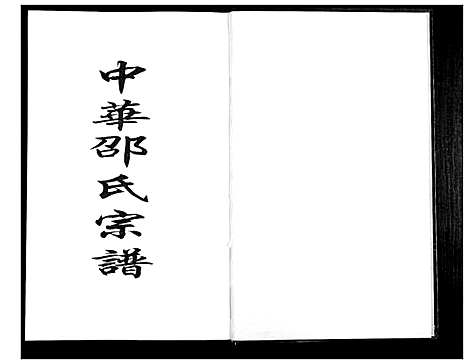 中華邵氏宗譜